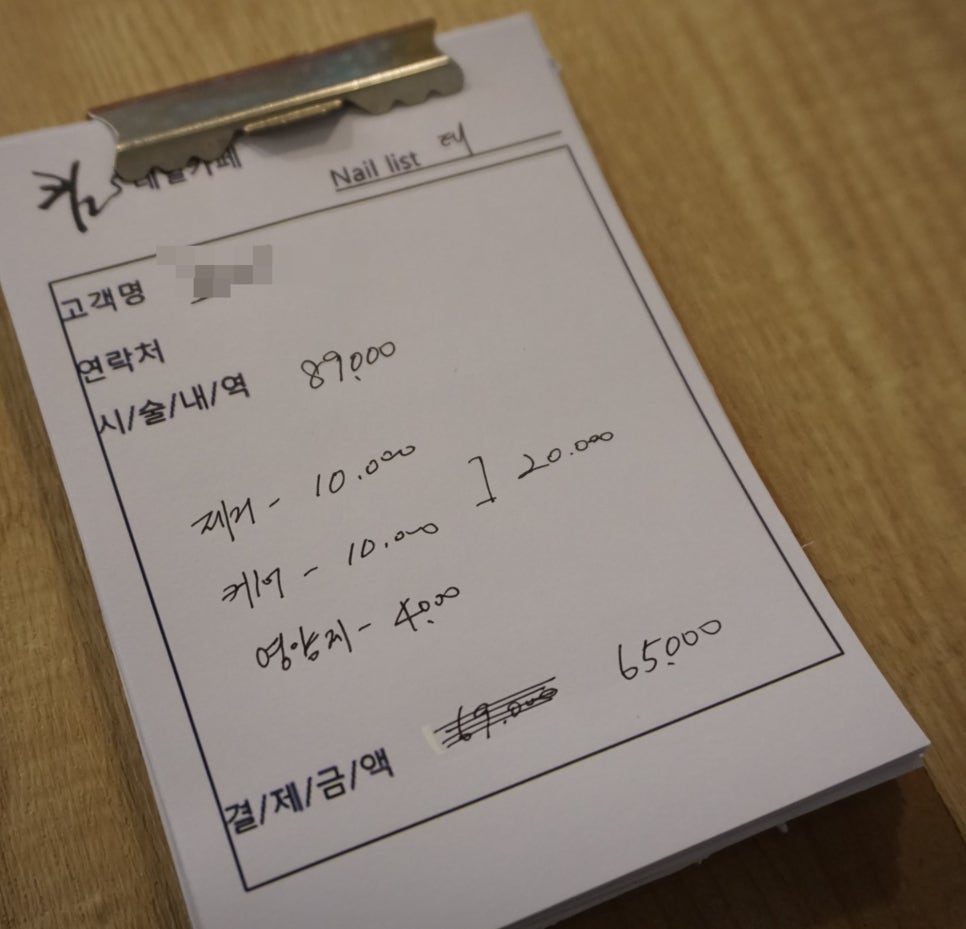 네일카페 Nail list
고객명
연락처
시/술/내/역 89.000
제거 - 10.000
] 20.000
케어 - 10.000
영양제 - 4.000
결/제/금/액 69.000 65.000